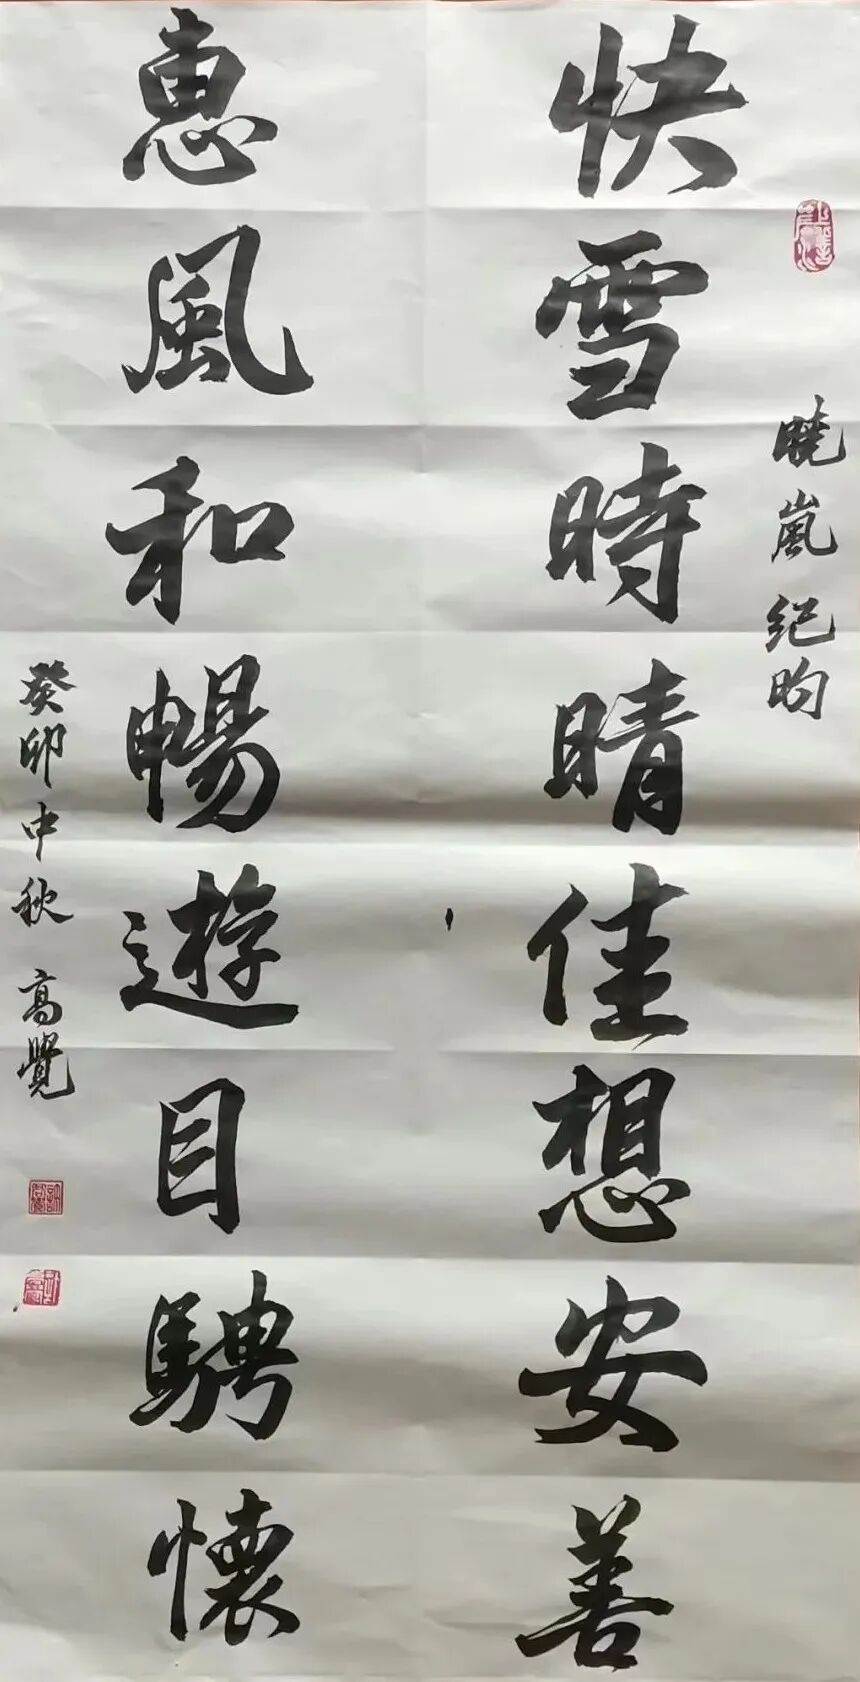 晓嵐纪昀
快雪時晴佳想安善
惠風和暢遊目騁懷
癸卯中秋 高覺